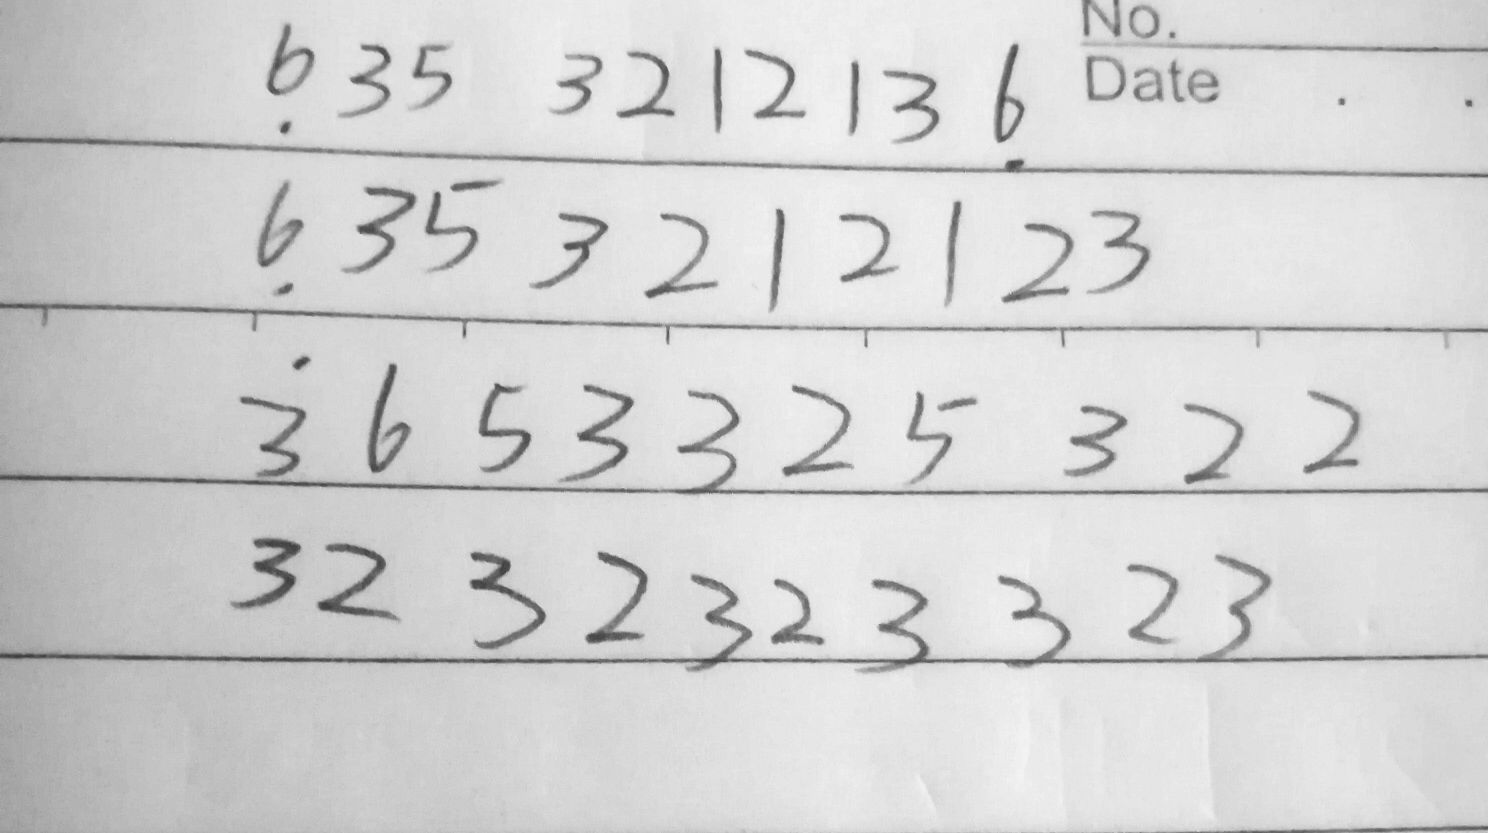 No.
Date . .
6̣ 35 3212136̣
6̣ 35 3 2 1 2 1 23
3̇ 6 5 3 3 2 5 3 2 2
32 3 2 32 3 3 23